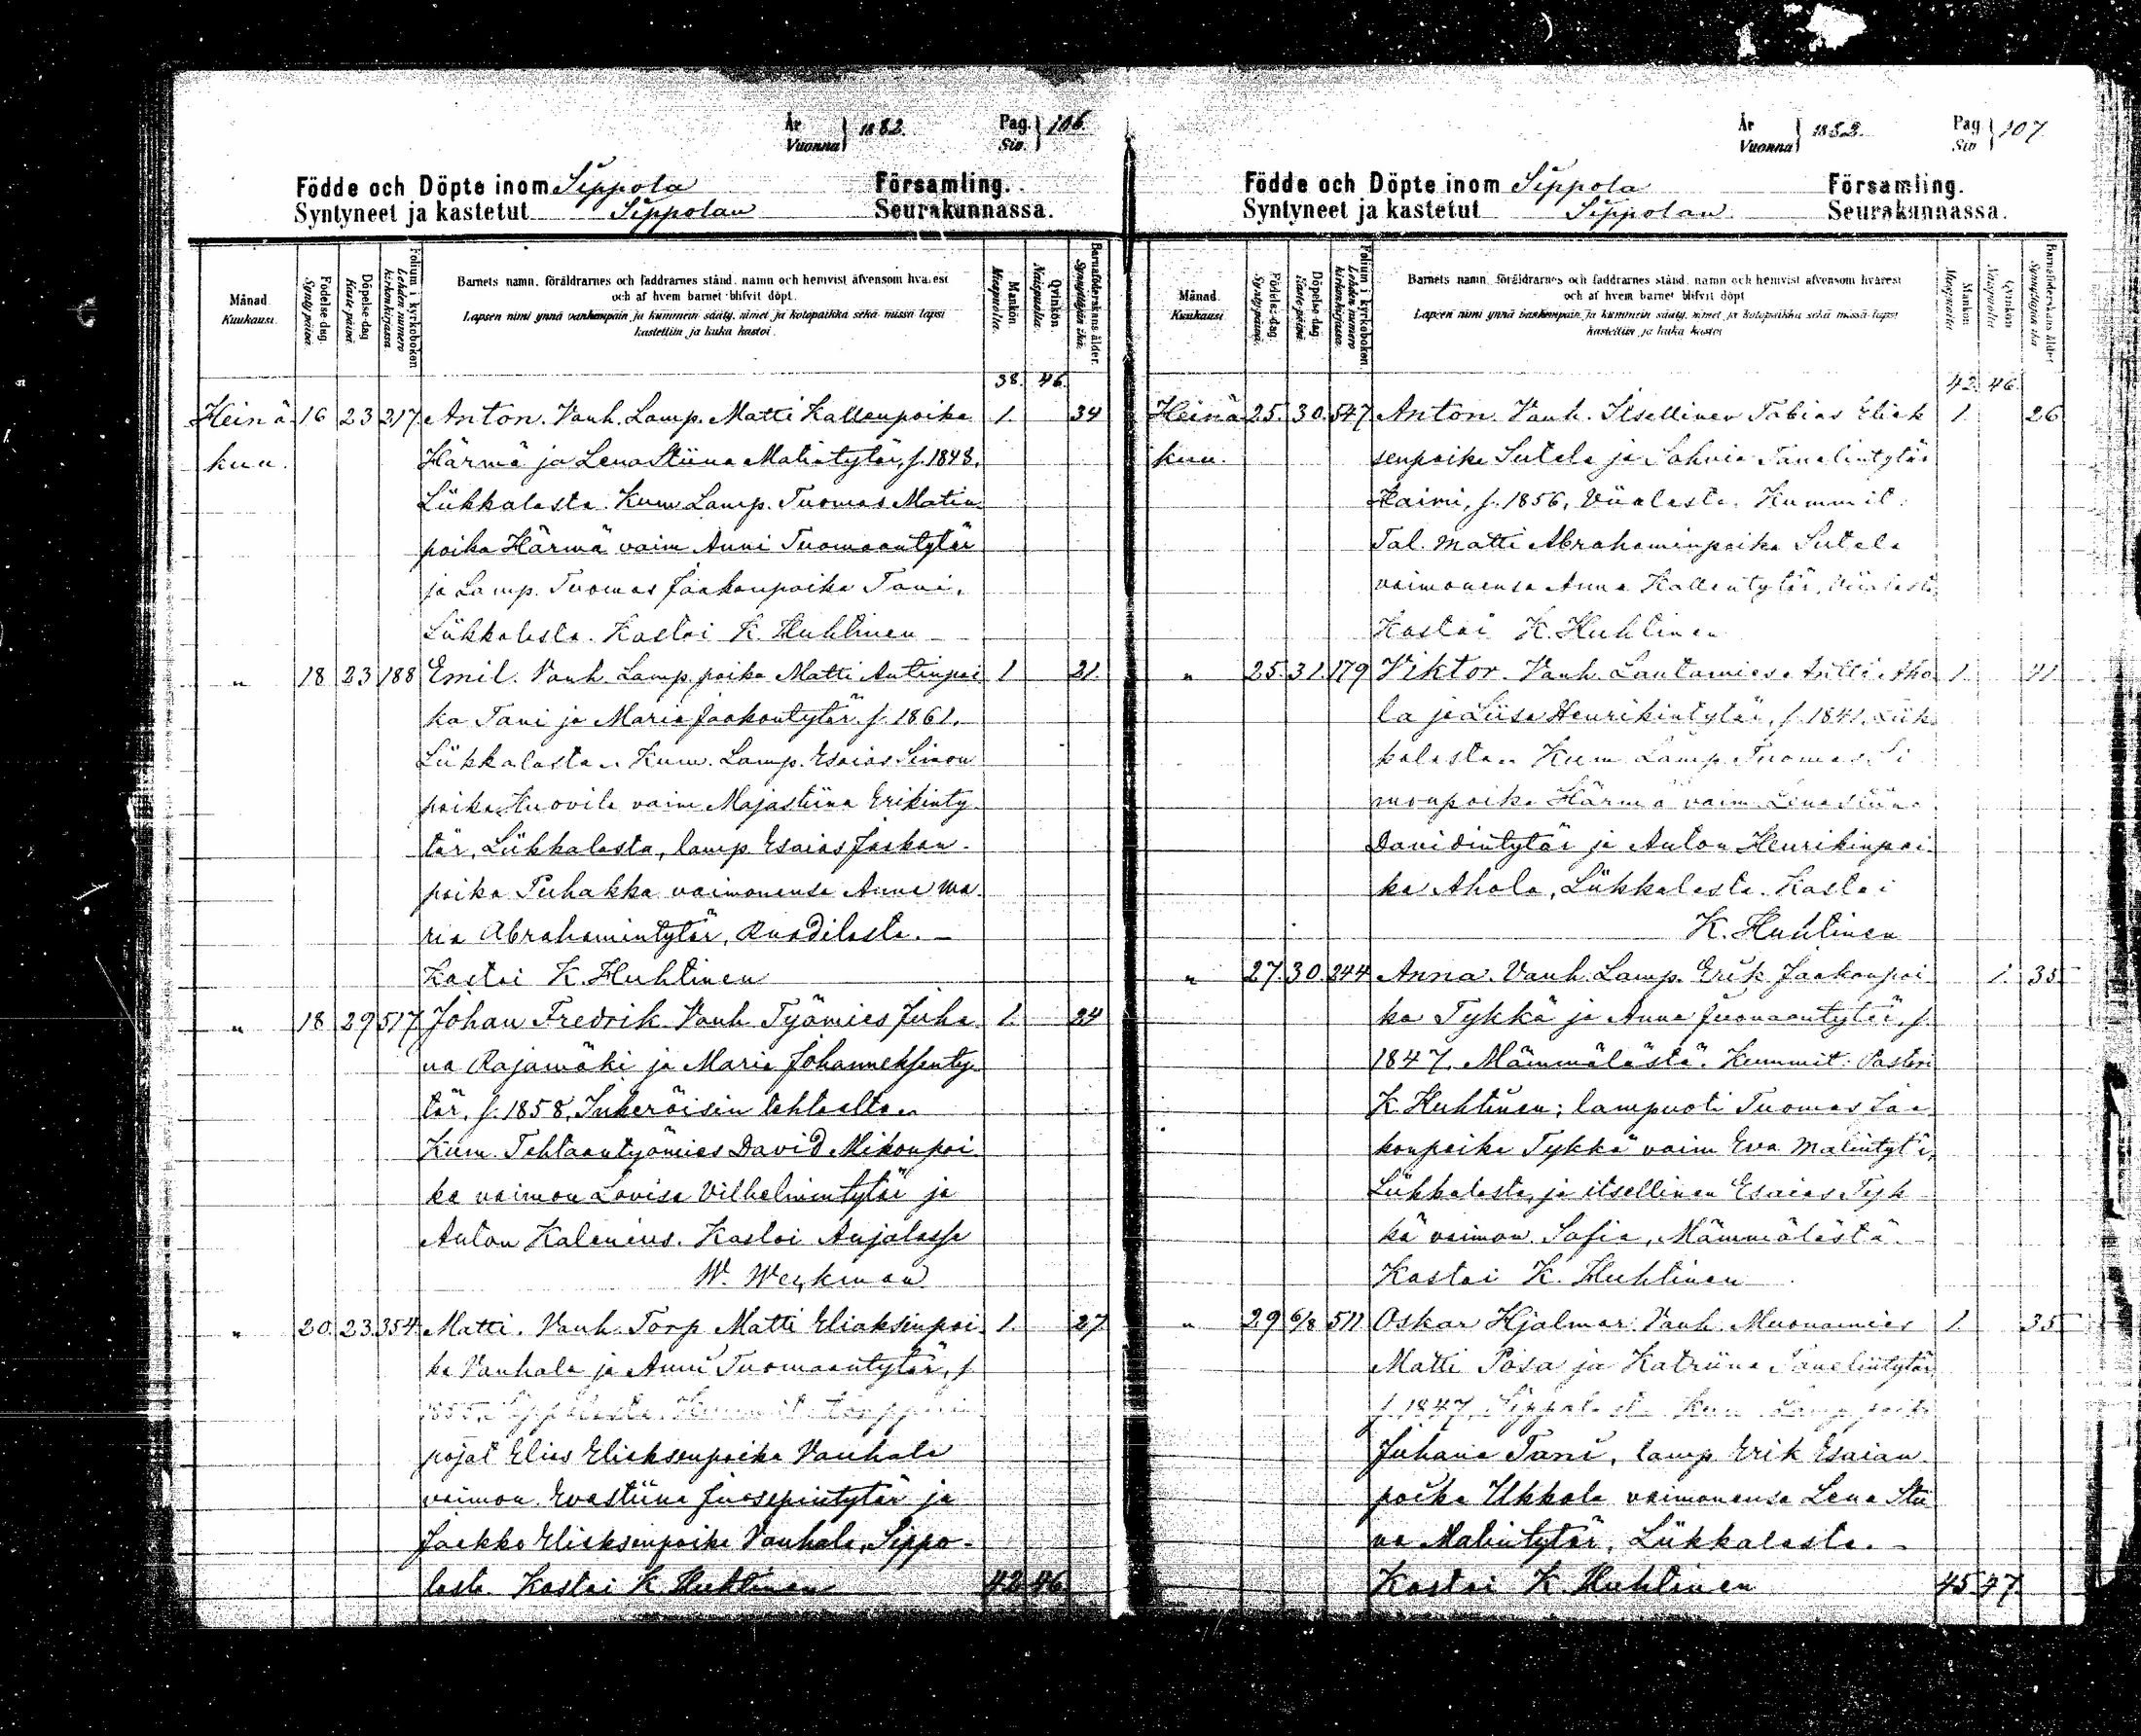 År Vuonna } 1882. Pag. Siv. } 106.
Födde och Döpte inom Sippola Församling.
Syntyneet ja kastetut Sippolan Seurakunnassa.
Månad. Kuukausi.
Födelse-dag. Syntypäivä.
Döpelse-dag. Kaste-päivä.
Folium i kyrkoboken. Lehden numero kirkonkirjassa.
Barnets namn, föräldrarnes och faddrarnes stånd, namn och hemvist äfvensom hvarest
och af hvem barnet blifvit döpt.
Lapsen nimi ynnä vanhempain ja kummein sääty, nimet ja kotopaikka sekä missä lapsi
kastettiin ja kuka kastoi.
Mankön. Miespuolia.
Qvinkön. Naispuolia.
Barnaföderskans ålder. Synnyttäjän ikä.
38. 46.
Heinä 16 23 217 Anton. Vanh. Lamp. Matti Kallenpoika 1. 34
kuu. Härmä ja Lena Stiina Matintytär, s. 1848,
Liikkalasta. Kum. Lamp. Tuomas Matin
poika Härmä vaim Anni Tuomaantytär
ja Lamp. Tuomas Jaakonpoika Tani,
Liikkalasta. Kastoi K. Huhtinen
" 18 23 188 Emil. Vanh. Lamp. poika Matti Antinpoi 1 21.
ka Tani ja Maria Jaakontytär s. 1861,
Liikkalasta. Kum. Lamp. Esaias Simon
poika Kuovila vaim Majastiina Erikinty
tär, Liikkalasta, lamp Esaias Jaakon
poika Puhakka vaimonensa Anna Ma
ria Abrahamintytär, Ruadilasta.
Kastoi K. Huhtinen
" 18 29 517 Johan Fredrik. Vanh. Työmies Juha 1. 24
na Rajamäki ja Maria Johanneksenty
tär, s. 1858, Inkeröisin tehtaalta
Kum. Tehtaantyömies David Mikonpoi
ka vaimon Lovisa Vilhelmintytär ja
Anton Kalenius. Kastoi Anjalassa
W. Weykman
" 20. 23. 354 Matti. Vanh. Torp Matti Eliaksenpoi 1. 27
ka Vanhala ja Anni Tuomaantytär, s
1855, Sippolasta. Kummit torpparin
pojat Elias Eliaksenpoika Vanhala
vaimon Evastiina Juosepintytär ja
Jaakko Eliaksenpoika Vanhala, Sippo
lasta. Kastoi K. Huhtinen 42 46
År Vuonna } 1882. Pag Siv } 107
Födde och Döpte inom Sippola Församling.
Syntyneet ja kastetut Sippolan Seurakunnassa.
Månad. Kuukausi.
Födelse-dag. Syntypäivä.
Döpelse-dag. Kaste-päivä.
Folium i kyrkoboken. Lehden numero kirkonkirjassa.
Barnets namn, föräldrarnes och faddrarnes stånd, namn och hemvist äfvensom hvarest
och af hvem barnet blifvit döpt
Lapsen nimi ynnä vanhempain ja kummein sääty, nimet ja kotopaikka sekä missä lapsi
kastettiin ja kuka kastoi
Mankön. Miespuolia
Qvinkön Naispuolia
Barnaföderskans ålder Synnyttäjän ikä
42. 46.
Heinä 25. 30. 547 Anton. Vanh. Itsellinen Tobias Eliak 1. 26
kuu. senpoika Sutela ja Sohvia Tanelintytär
Kaimi, s. 1856, Viialasta. Kummit
Tal. Matti Abrahaminpoika Sutela
vaimonensa Anna Kallentytär, Viialasta
Kastoi K. Huhtinen
" 25. 31. 179 Viktor. Vanh. Lautamies Antti Aho 1. 41
la ja Liisa Henrikintytär, s. 1841, Liik
kalasta. Kum Lamp. Tuomas Si
monpoika Härmä vaim Lena Stiina
Davidintytär ja Anton Henrikinpoi
ka Ahola, Liikkalasta. Kastoi
K. Huhtinen
" 27. 30. 244 Anna. Vanh. Lamp. Erik Jaakonpoi 1. 35
ka Tykkä ja Anna Juonaantytär, s.
1847, Mämmälästä. Kummit: Pastori
K. Huhtinen; lampuoti Tuomas Jaa
konpoika Tykkä vaim Eva Matintytär,
Liikkalasta, ja itsellinen Esaias Tyk
kä vaimon Sofia, Mämmälästä.
Kastoi K. Huhtinen
" 29 6/8 511 Oskar Hjalmar. Vanh. Muonamies 1. 35
Matti Posa ja Katriina Tanelintytär
s. 1847, Sippolasta Kum Lamp poika
Juhana Tani, lamp Erik Esaian
poika Ukkola vaimonensa Lena Stii
na Matintytär, Liikkalasta.
Kastoi K. Huhtinen 45 47